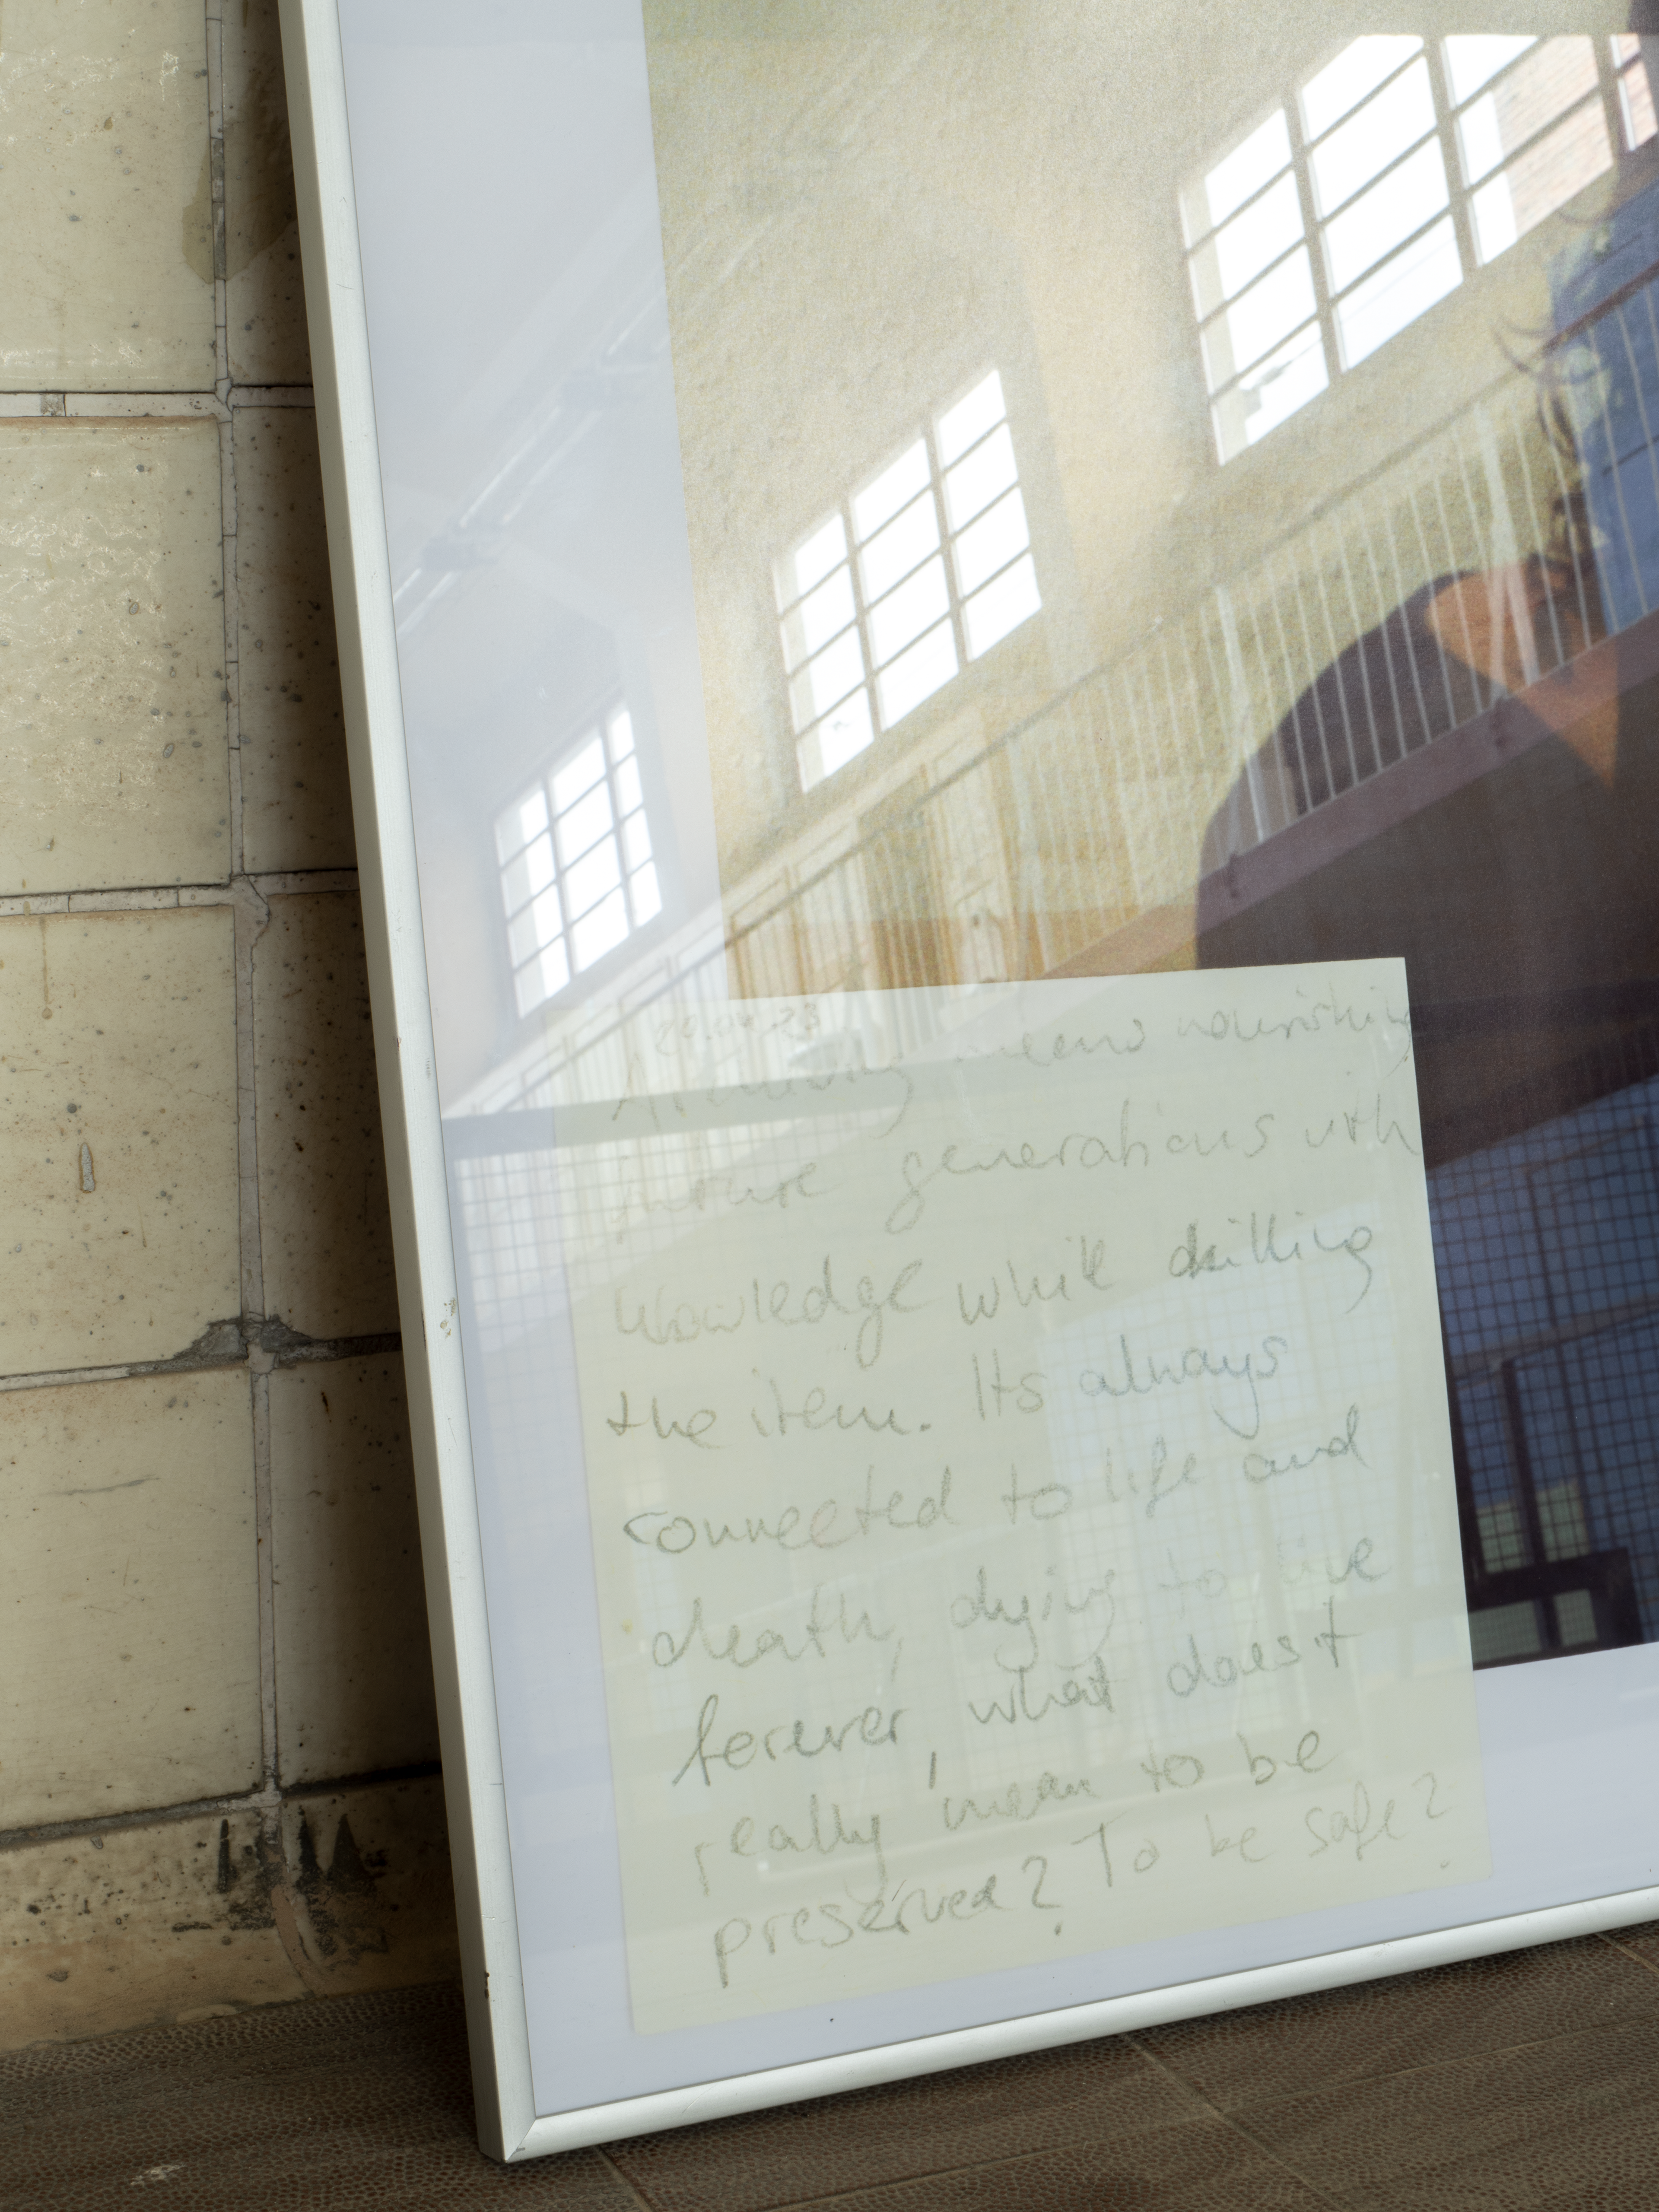 20.04.23
Archiving means nourishing
future generations with
knowledge while killing
the item. Its always
connected to life and
death, dying to live
forever, what does it
really mean to be
preserved? To be safe?